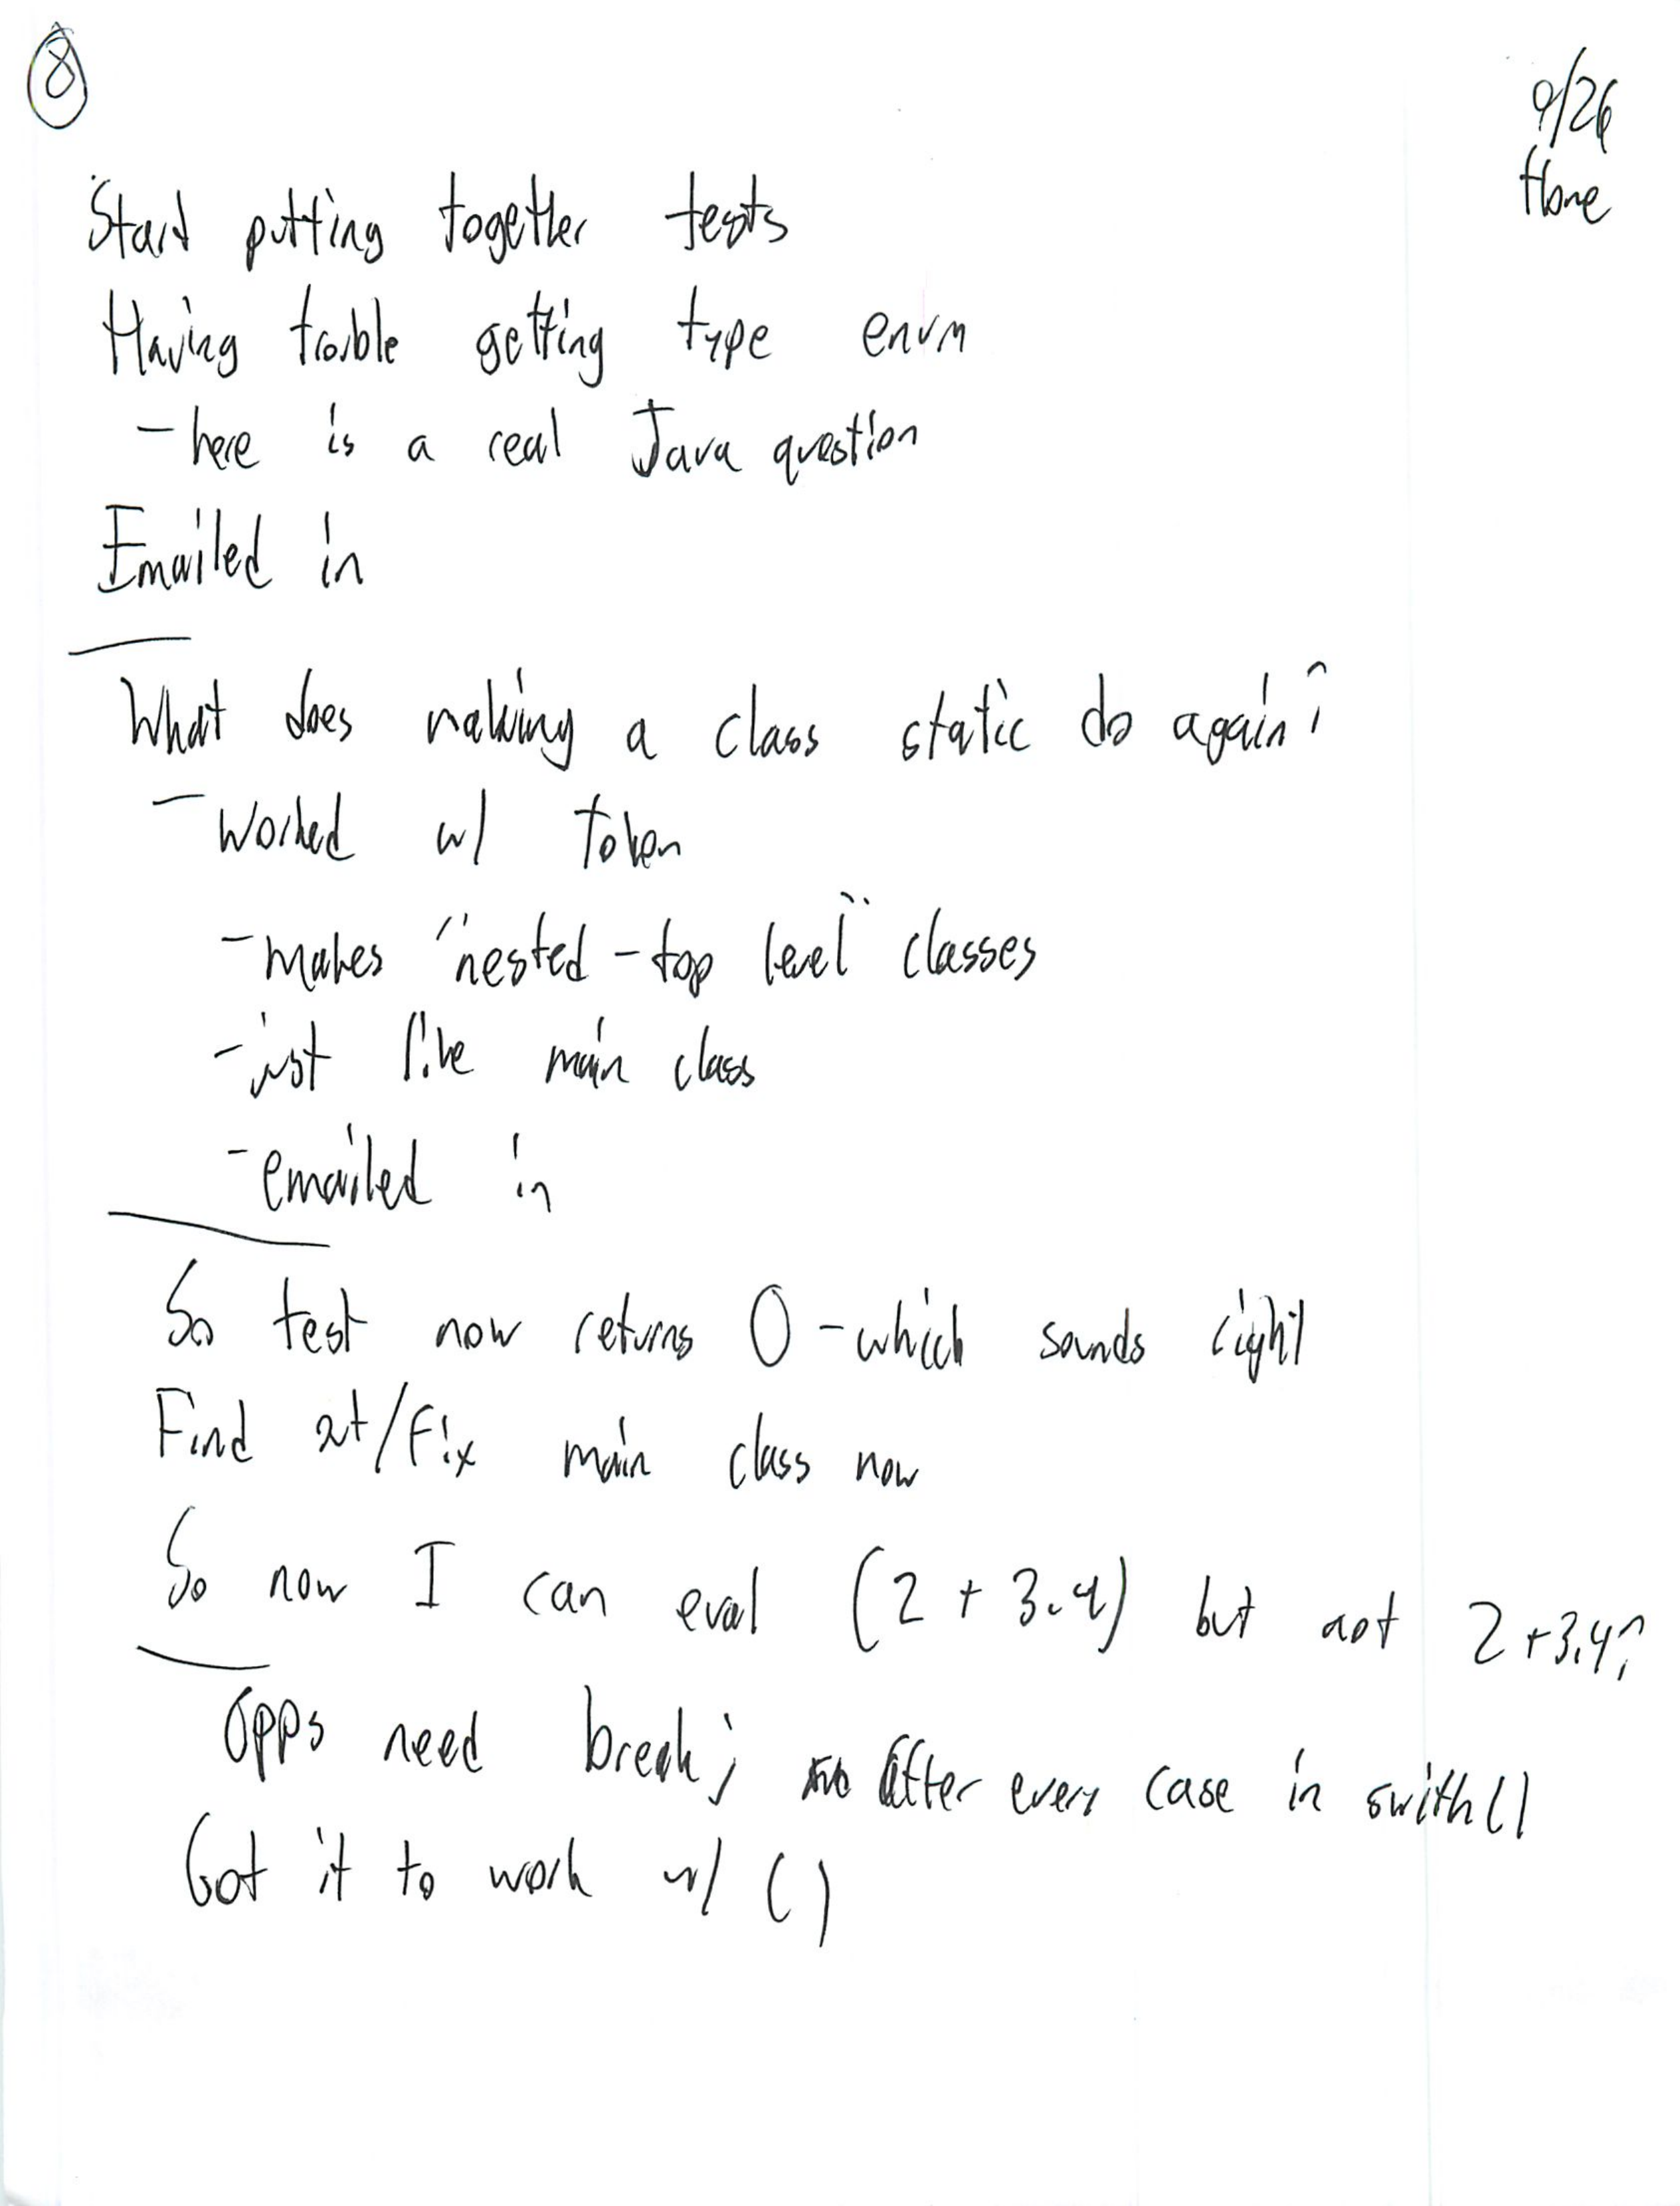 8
9/26
Home
Start putting together tests
Having trouble getting type enum
- here is a real Java question
Emailed in
What does making a class static do again?
- Worked w/ Token
- makes "nested - top level" classes
- just like main class
- emailed in
So test now returns 0 - which sounds right
Find out/Fix main class now
So now I can eval (2 + 3.4) but not 2+3.4?
Opps need break; after every case in swith()
Got it to work w/ ()